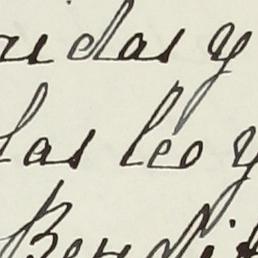 ridas y
las leo y
Bendi